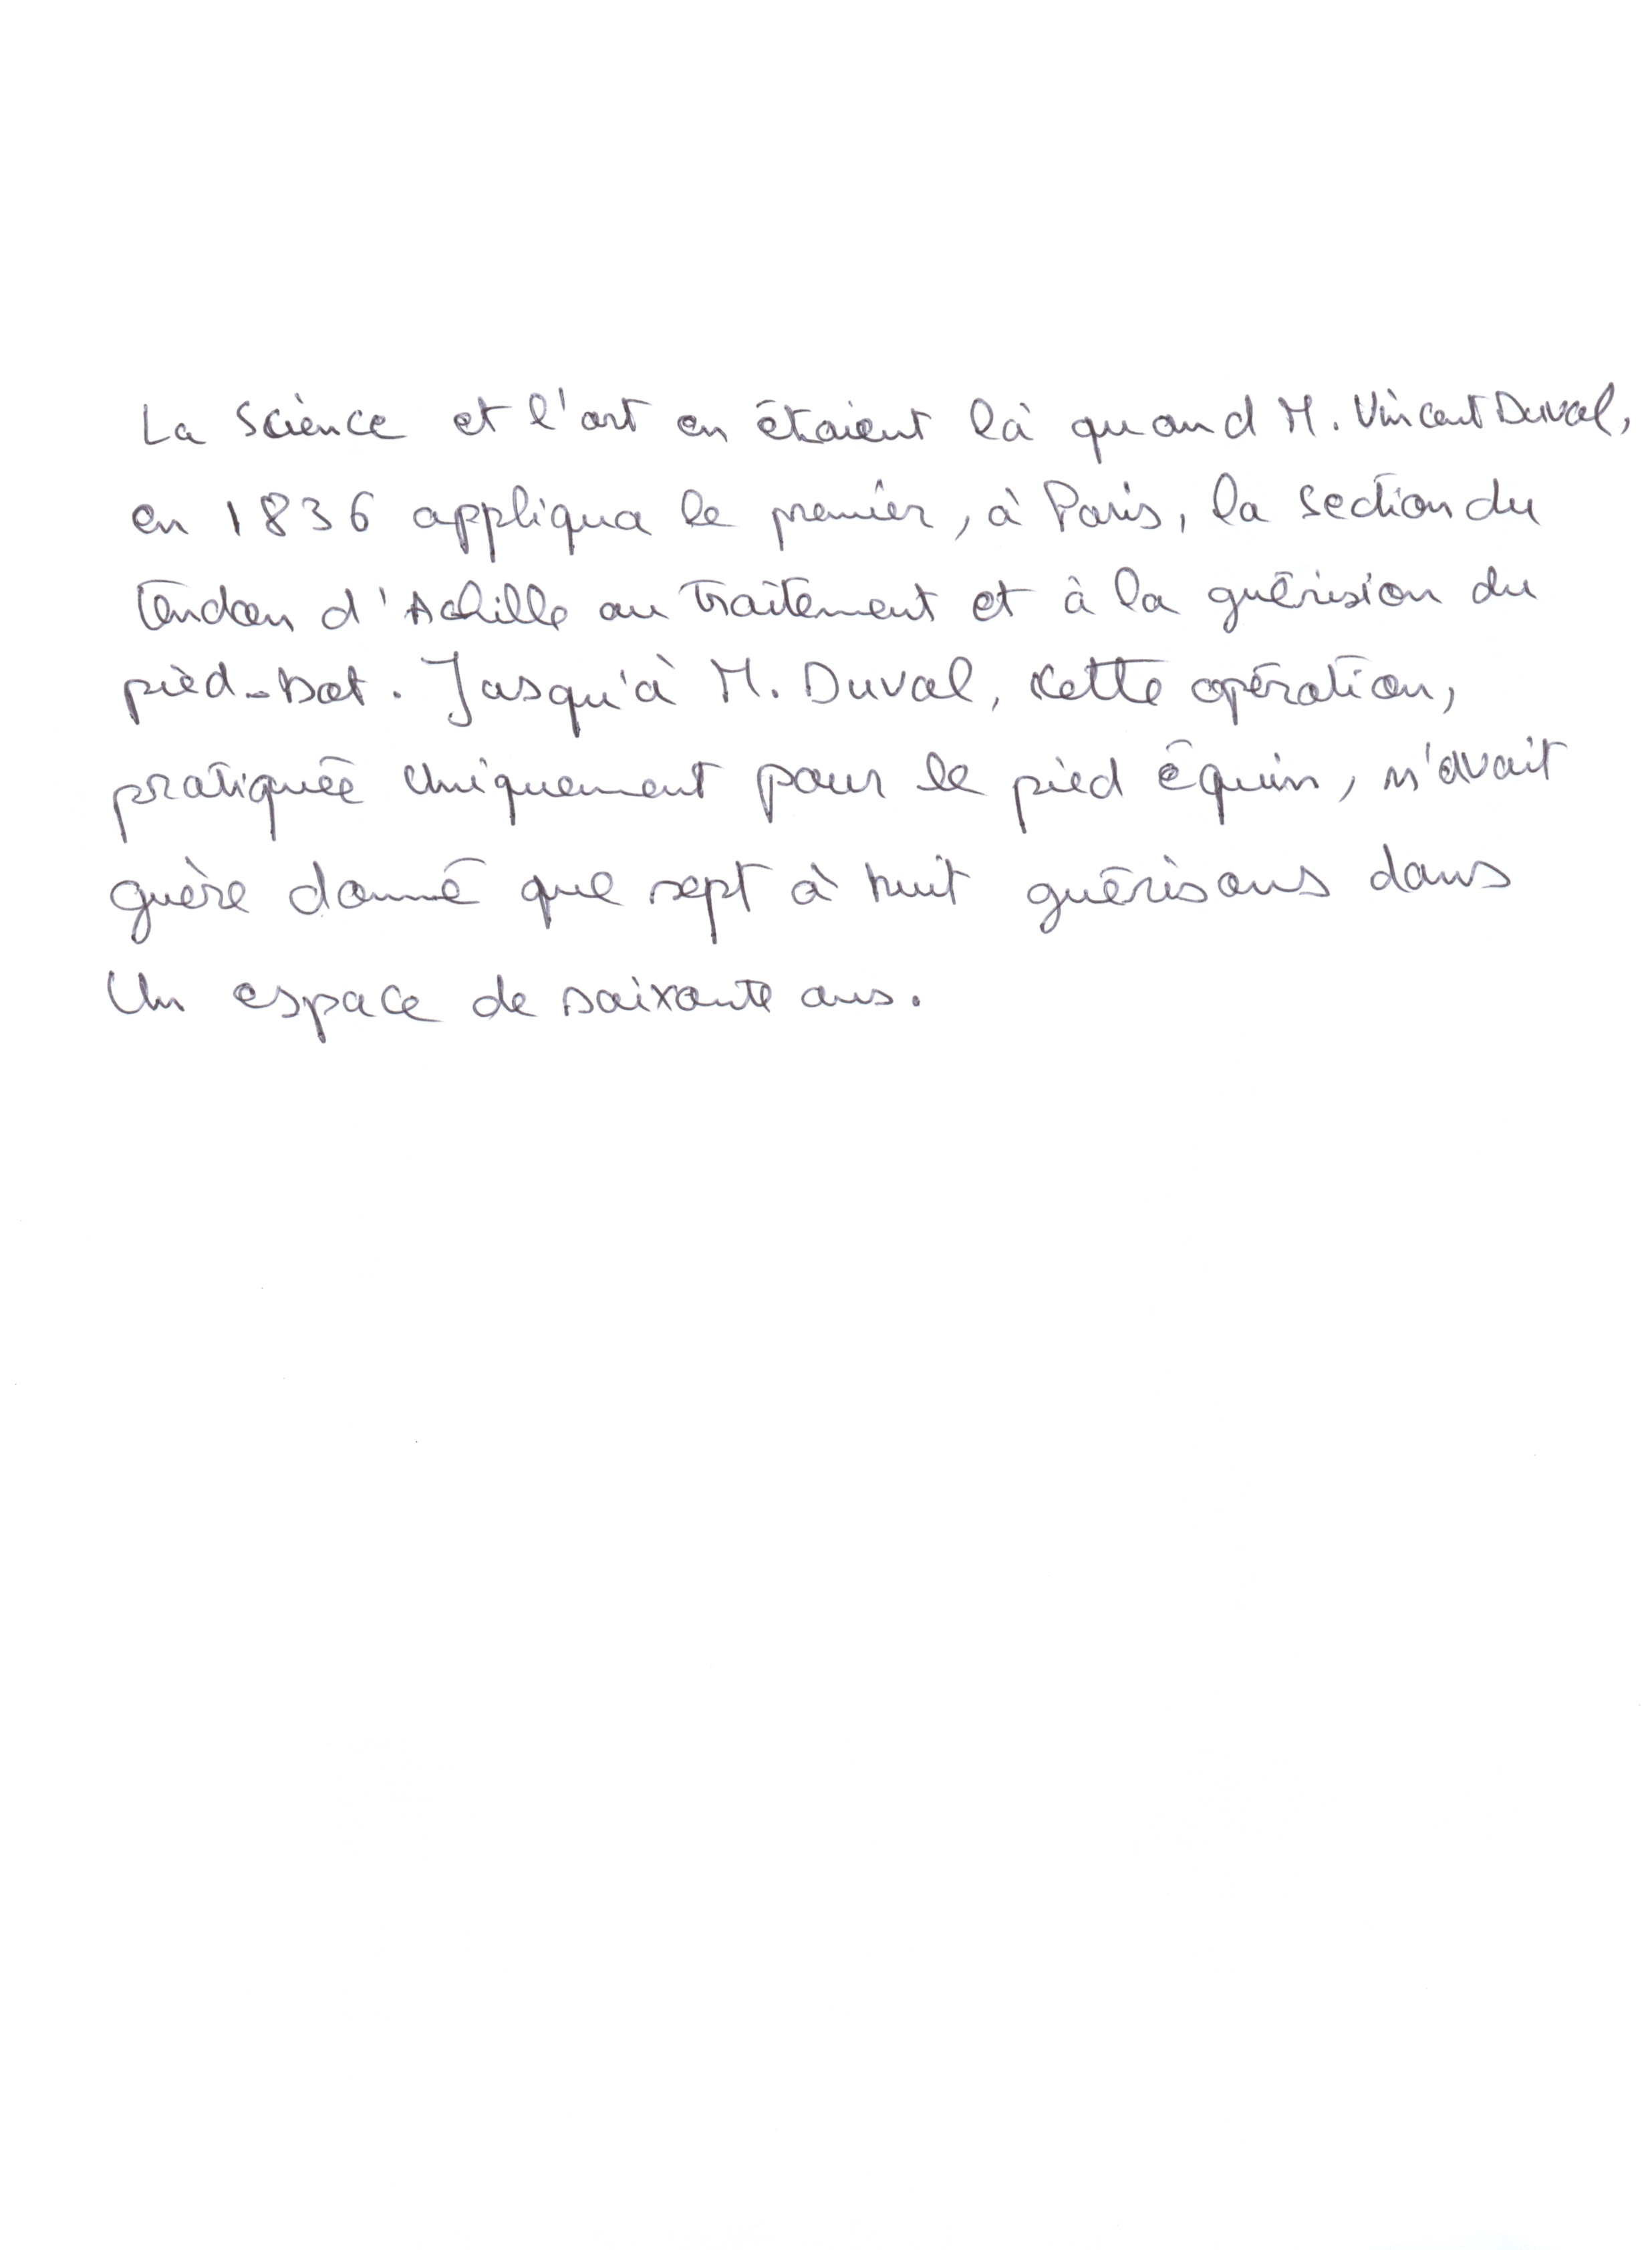 La science et l'art en étaient là quand M. Vincent Duval,
en 1836 appliqua le premier, à Paris, la section du
tendon d'Achille au traitement et à la guérision du
pied-bot. Jusqu'à M. Duval, cette opération,
pratiquée uniquement pour le pied équin, n'avait
guère donné que sept à huit guérisons dans
un espace de soixante ans.